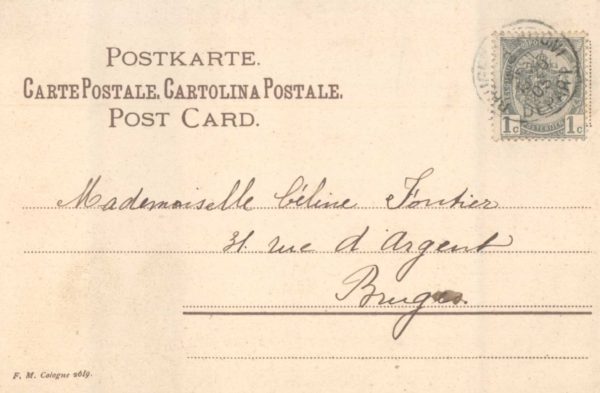 POSTKARTE.
CARTE POSTALE. CARTOLINA POSTALE.
POST CARD.
1c 1c
DEPART
Mademoiselle Céline Fontier
31 rue d'Argent
Bruges.
F. M. Cologne 2619.